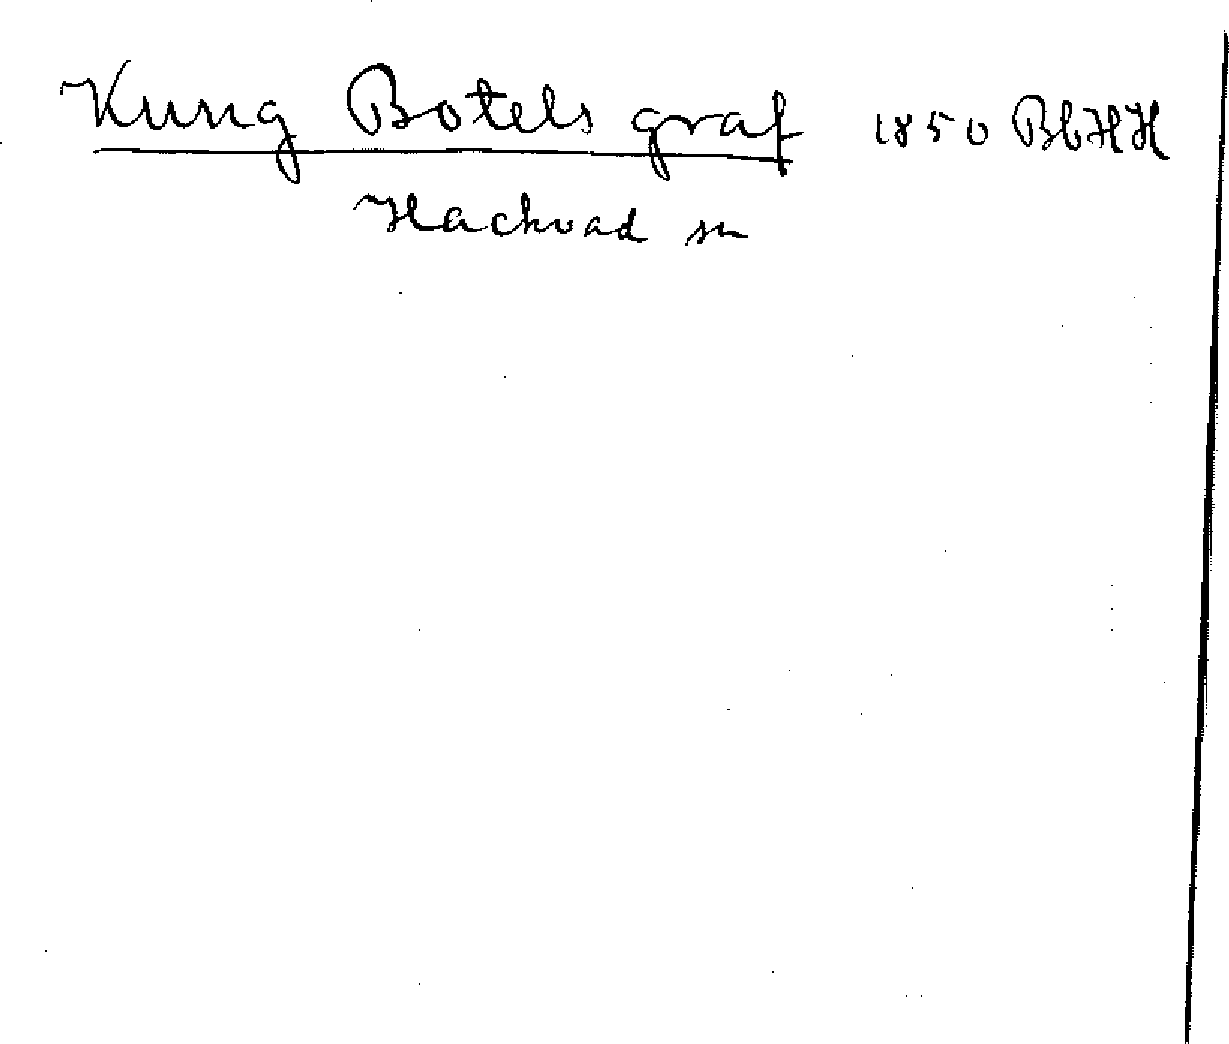 Kung Botels graf 1850 BbHH
Hachvad sn